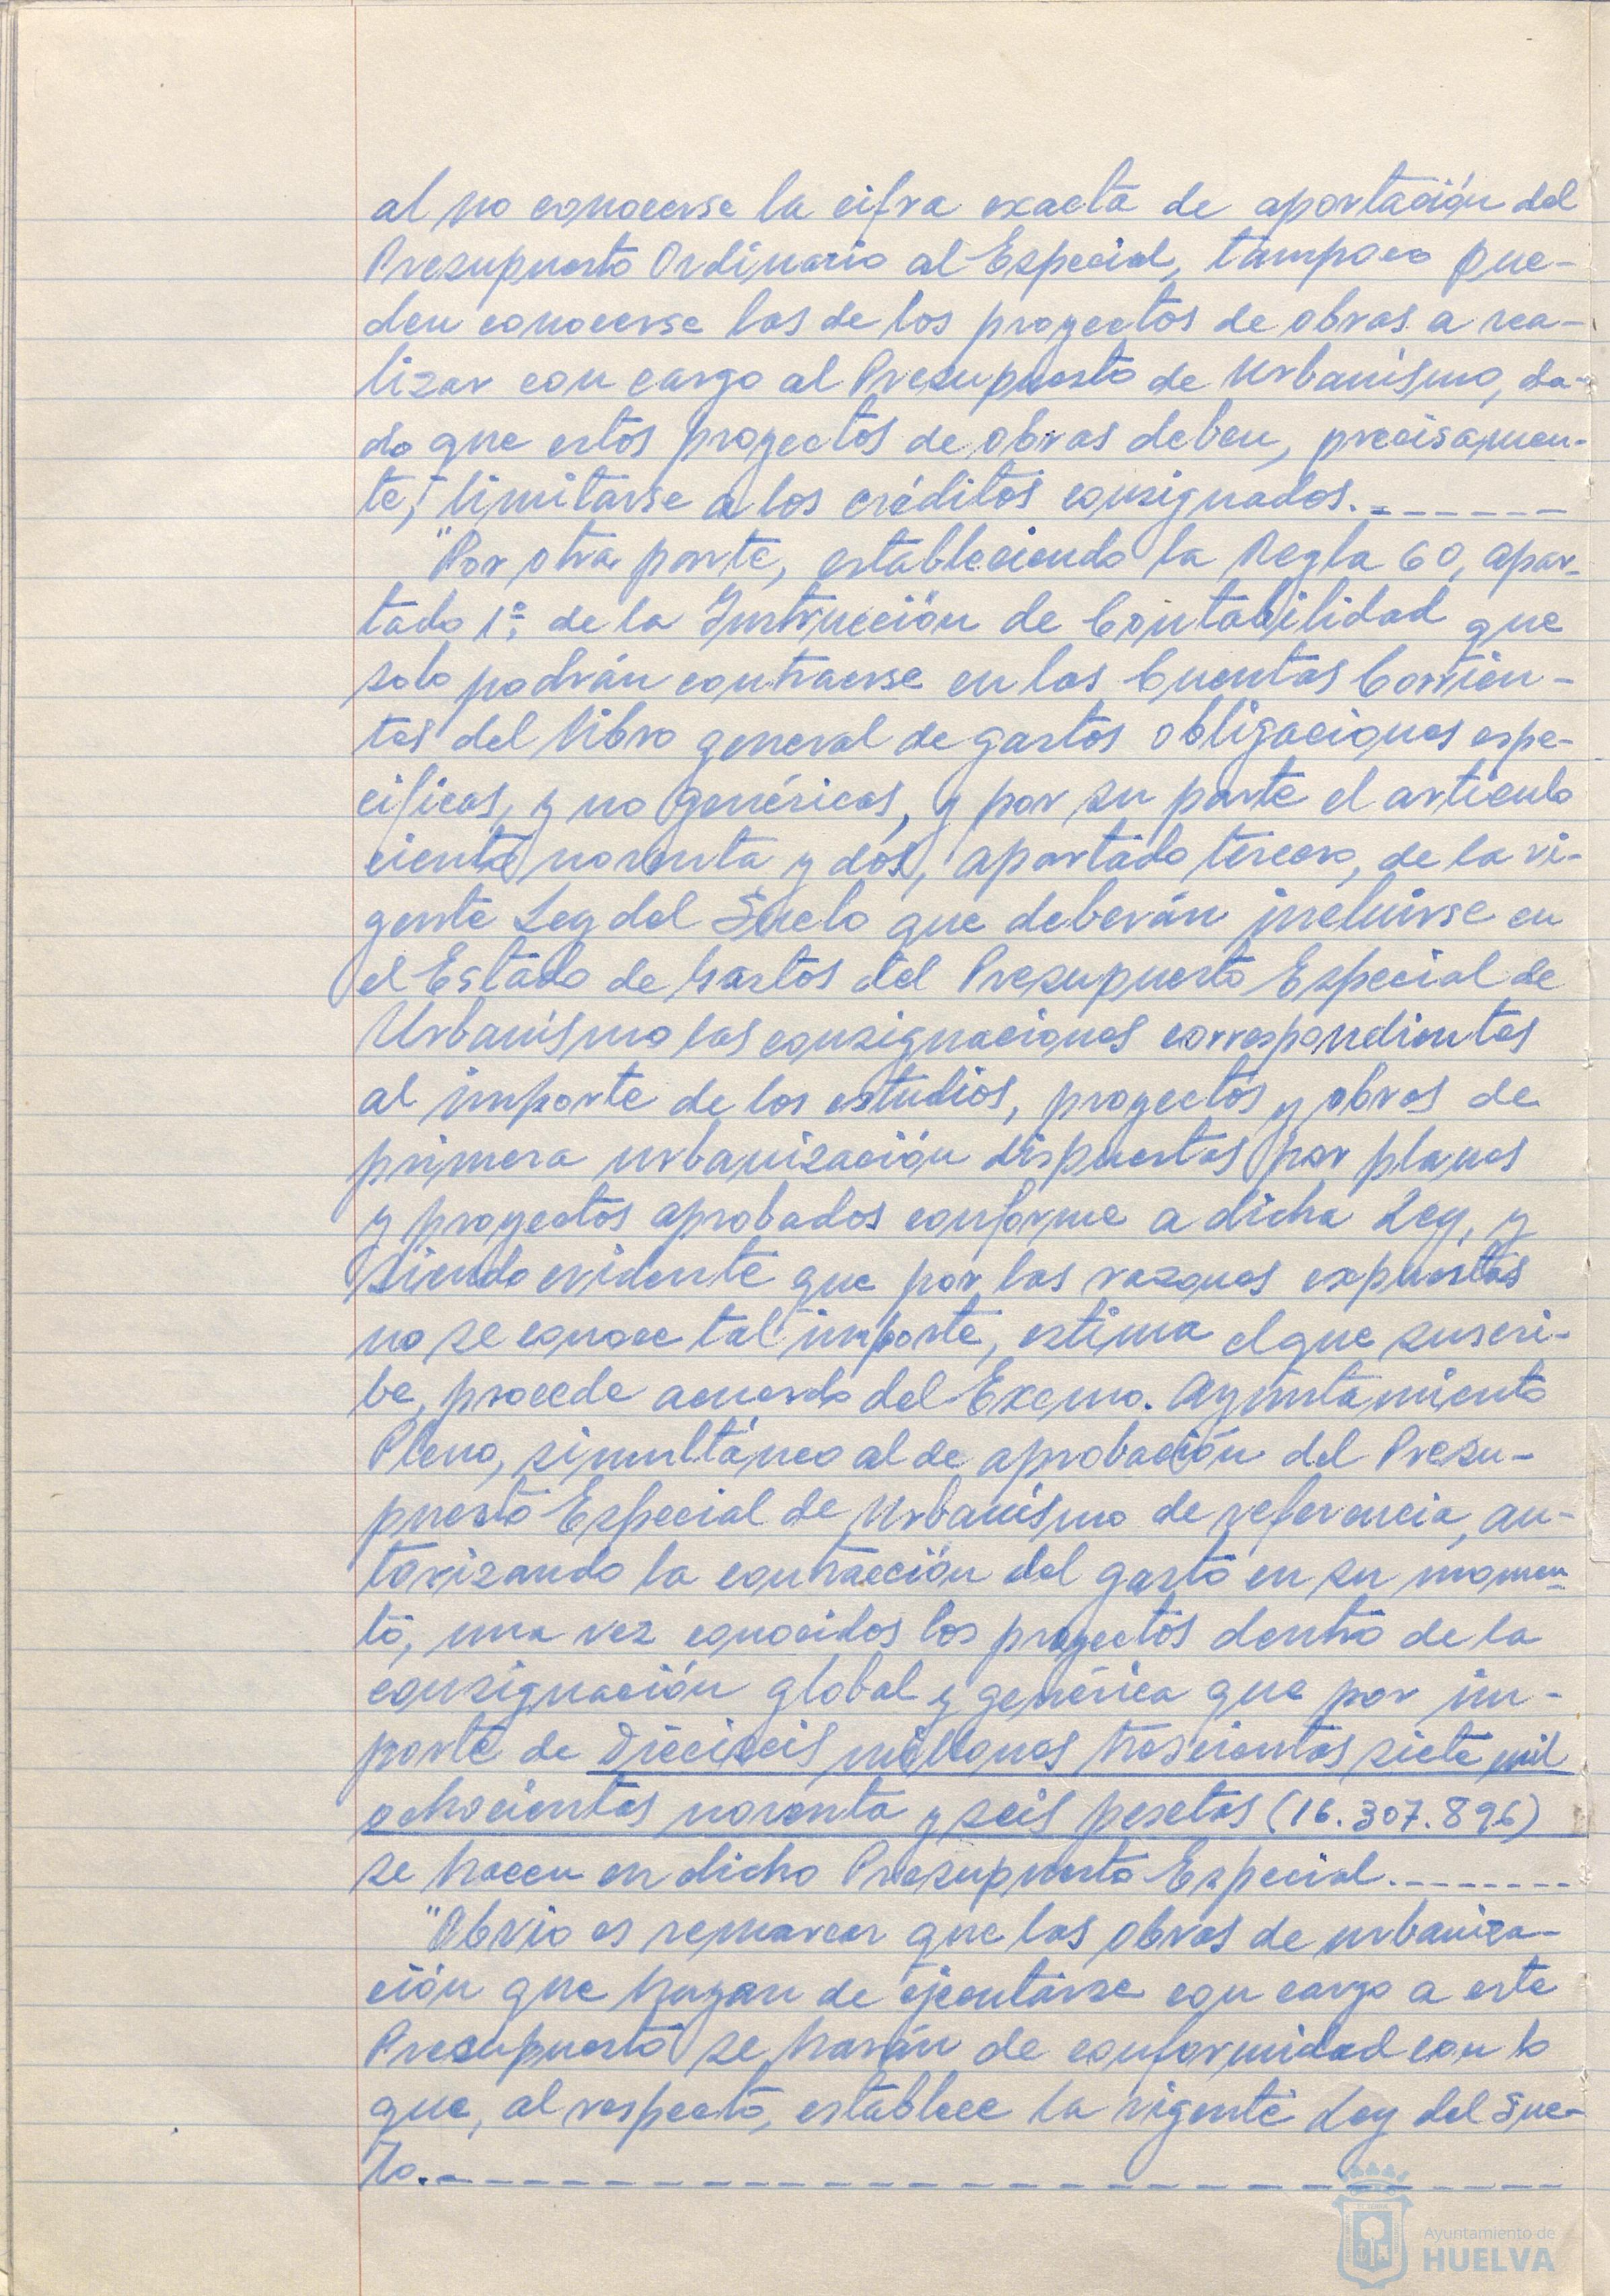 al no conocerse la cifra exacta de aportación del
Presupuesto Ordinario al Especial, tampoco pue-
den conocerse las de los proyectos de obras a rea-
lizar con cargo al Presupuesto de Urbanismo, da-
do que estos proyectos de obras deben, precisamen-
te, limitarse a los créditos consignados.-------
"Por otra parte, estableciendo la Regla 60, apar-
tado 1º, de la Instrucción de Contabilidad que
solo podrán contraerse en las Cuentas Corrien-
tes del libro general de gastos obligaciones espe-
cíficas, y no genéricas, y por su parte el artículo
ciento noventa y dos, apartado tercero, de la vi-
gente Ley del Suelo que deberán incluirse en
el Estado de Gastos del Presupuesto Especial de
Urbanismo las consignaciones correspondientes
al importe de los estudios, proyectos y obras de
primera urbanización dispuestas por planes
y proyectos aprobados conforme a dicha Ley, y
siendo evidente que por las razones expuestas
no se conoce tal importe, estima el que suscri-
be, procede acuerdo del Excmo. Ayuntamiento
Pleno, simultáneo al de aprobación del Presu-
puesto Especial de Urbanismo de referencia, au-
torizando la contracción del gasto en su momen-
to, una vez conocidos los proyectos dentro de la
consignación global y genérica que por im-
porte de Dieciseis millones trescientas siete mil
ochocientas noventa y seis pesetas (16.307.896)
se hacen en dicho Presupuesto Especial.--------
"Obvio es remarcar que las obras de urbaniza-
ción que hayan de ejecutarse con cargo a este
Presupuesto se harán de conformidad con lo
que, al respecto, establece la vigente Ley del Sue-
lo.--------------------
Ayuntamiento de
HUELVA